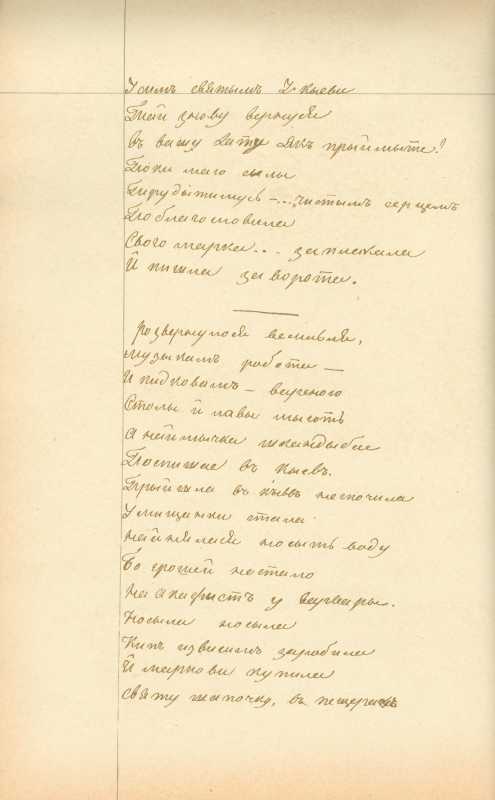 Усимъ святымъ У Кыеви
Тай знову вернуся
въ вашу хату як прыймыте!
Поки маю сылы
Трудытимусь – ... чистымъ серцемъ
Поблагословила
Свого марка... заплакала
Й пишла за ворота.
Розвернулося весилля,
музыкамъ робота —
И пидковамъ – вареною
Столы й лавы мыють
А наймычка шкандыбае
Поспишае въ Кыевъ.
Прыйшла въ Кыевъ не спочила
У мищанки стала
найнялася носыть воду
Бо грошей не стало
На акафыстъ у Варвары.
Носыла носыла
Кипъ изъ висимъ заробила
Й маркови купила
святу шапочку, въ пещерахъ